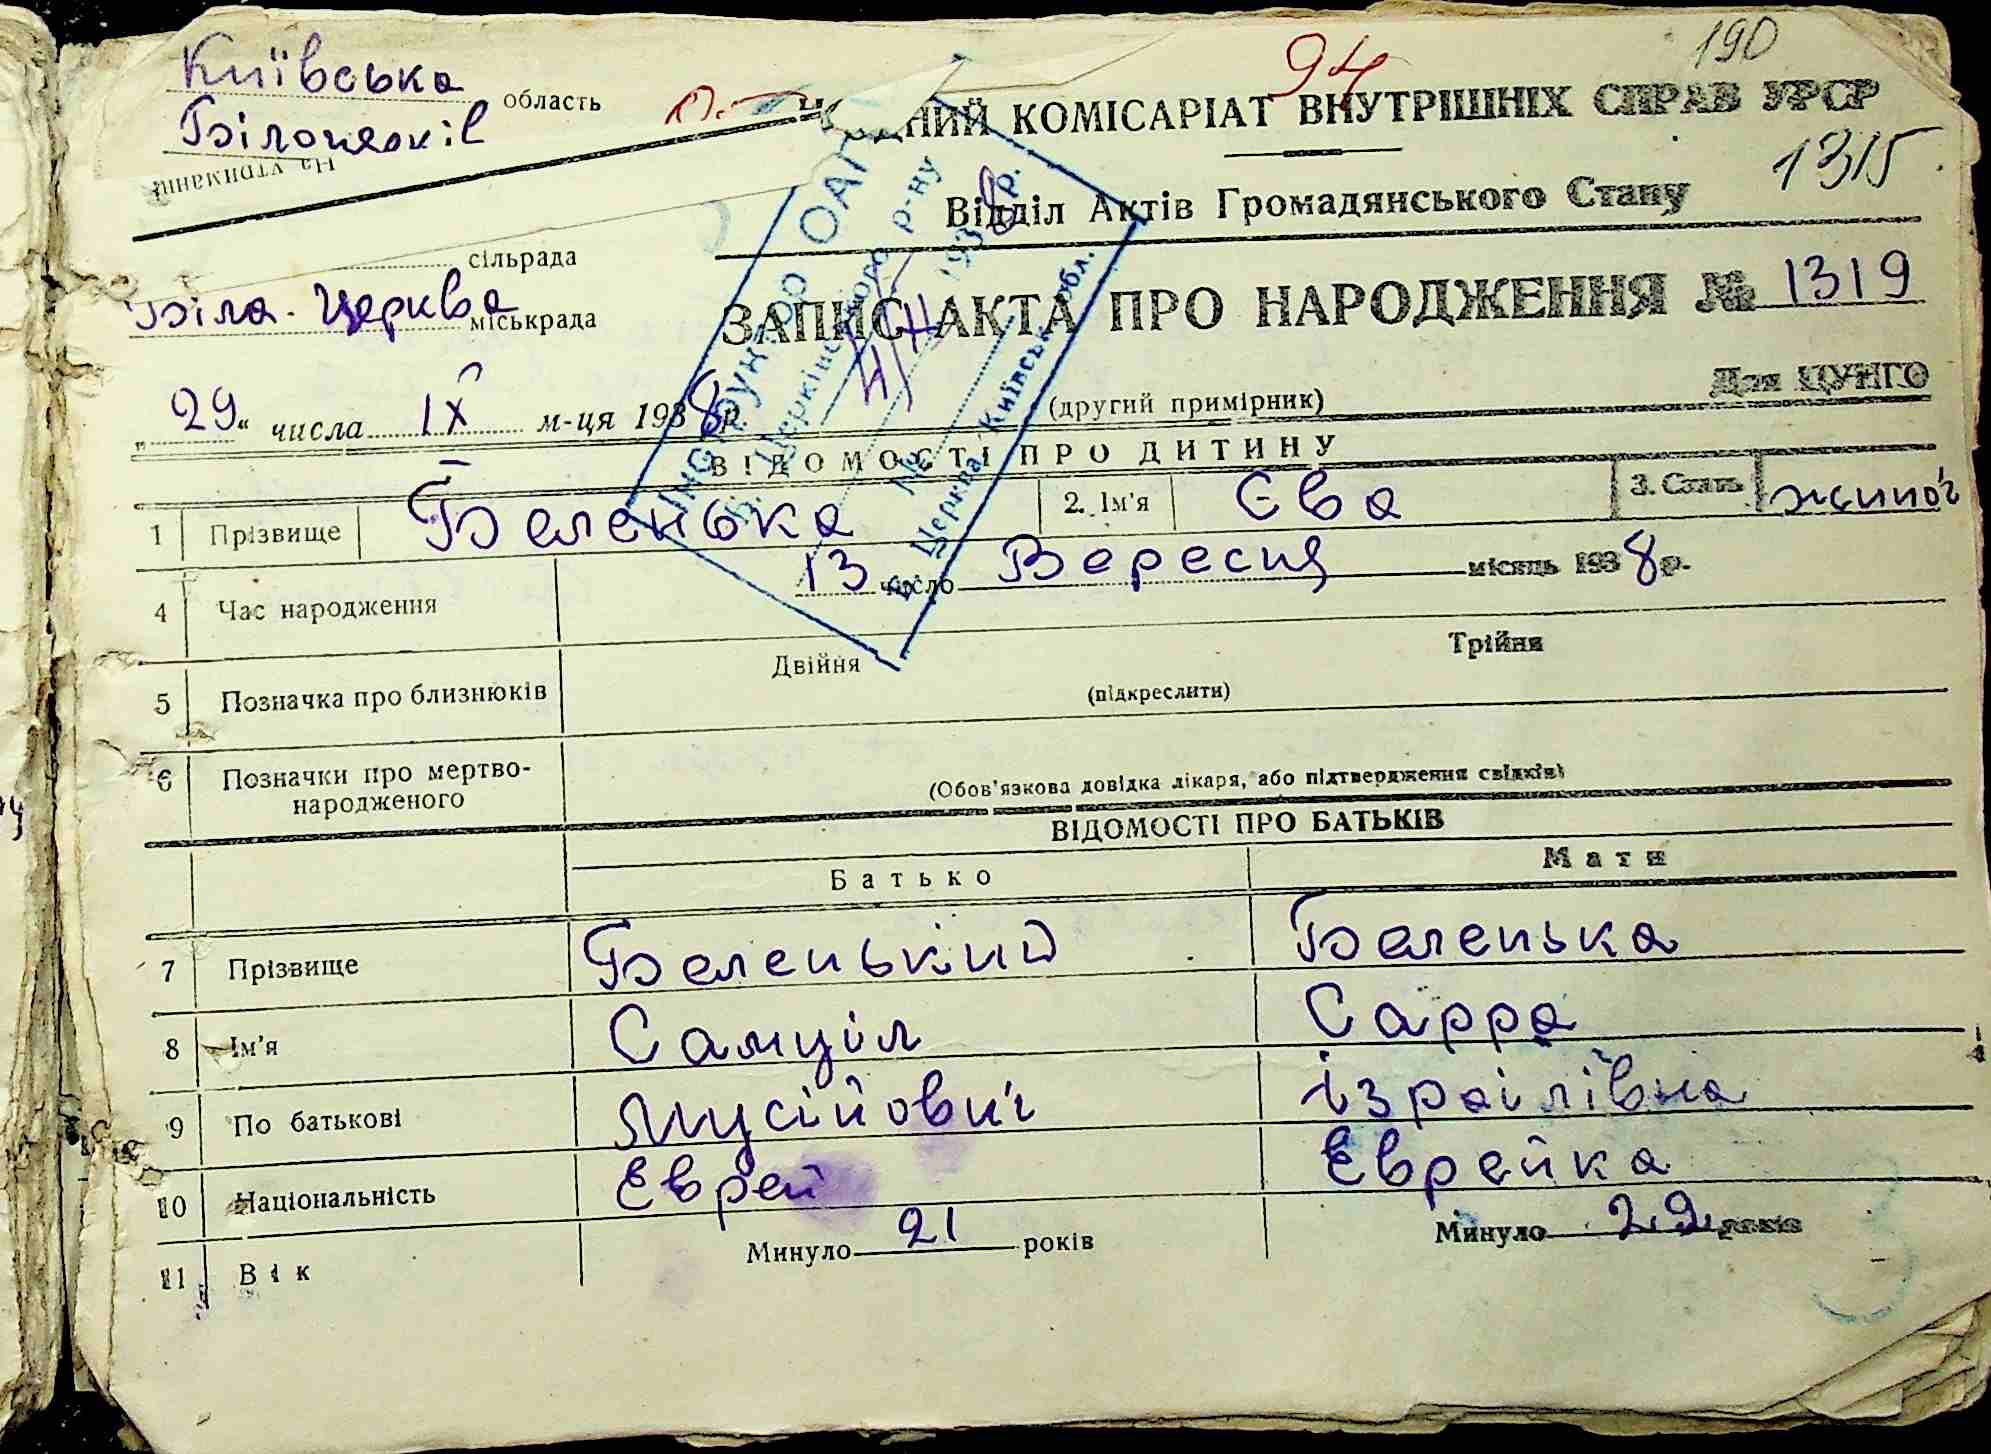 190
94
Київська область
Білоцерків
На утриманні
НИЙ КОМІСАРІАТ ВНУТРІШНІХ СПРАВ УРСР
1315
Відділ Актів Громадянського Стану
сільрада
Біла-Церква міськрада
ЗАПИС АКТА ПРО НАРОДЖЕННЯ № 1319
Для ЦУНГО
„29“ числа IX м-ця 1938 р.
(другий примірник)
ВІДОМОСТІ ПРО ДИТИНУ
1 Прізвище Беленька 2. Ім'я Єва 3. Стать жіноч
4 Час народження 13 число Вересня місяць 1938 р.
5 Позначка про близнюків Двійня Трійня
(підкреслити)
6 Позначки про мертво-
народженого
(Обов'язкова довідка лікаря, або підтвердження свідків)
ВІДОМОСТІ ПРО БАТЬКІВ
Батько Мати
7 Прізвище Беленький Беленька
8 Ім'я Самуіл Сарра
9 По батькові Мусійович Ізраілівна
10 Національність Еврей Еврейка
11 Вік Минуло 21 років Минуло 22 років